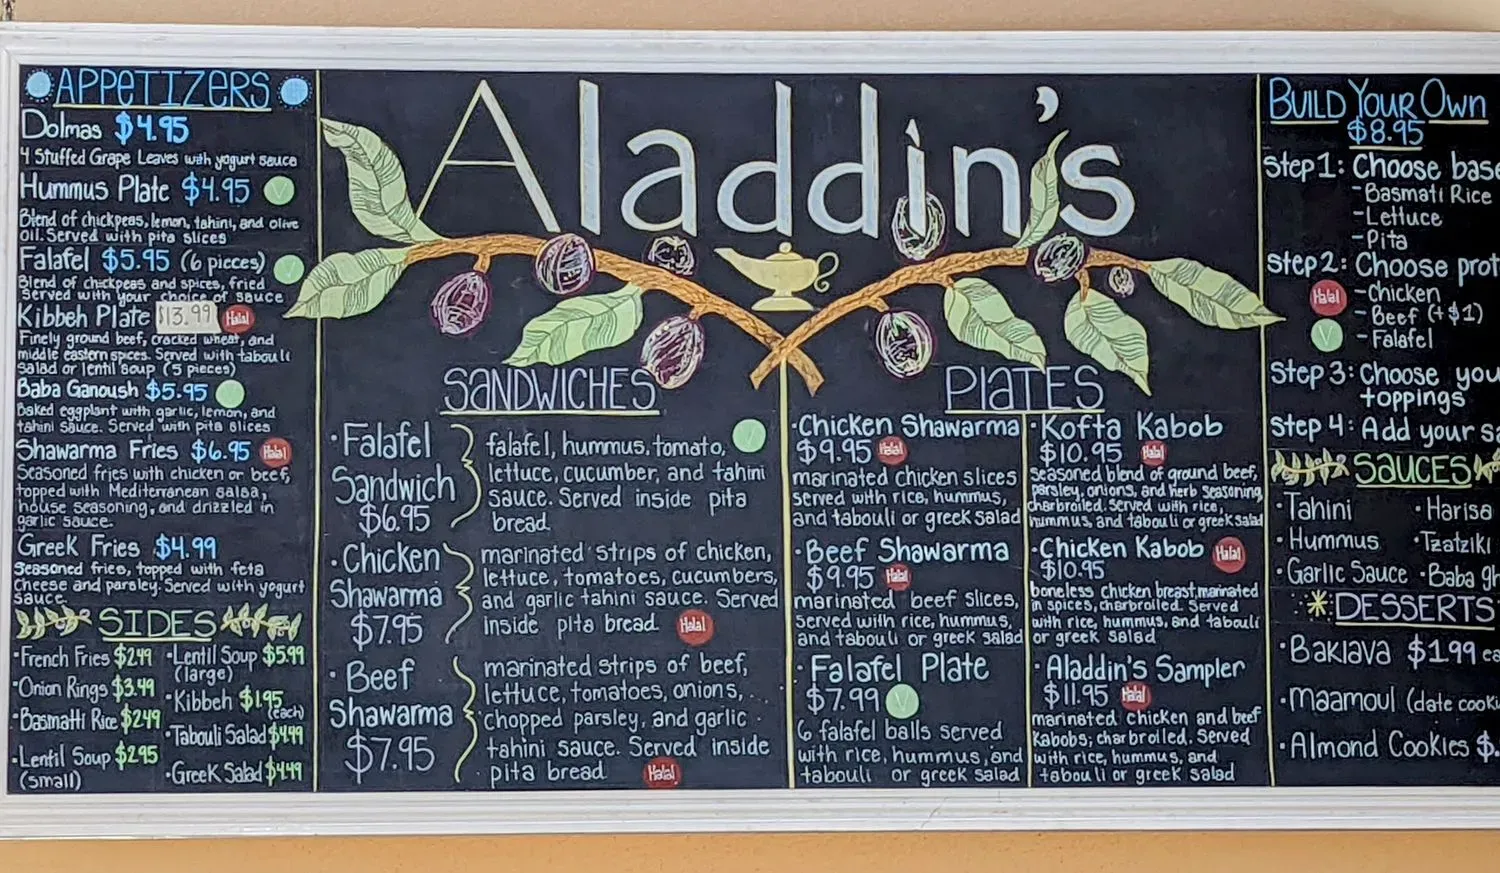 APPETIZERS
Dolmas $4.95
4 Stuffed Grape Leaves with yogurt sauce
Hummus Plate $4.95 V
Blend of chickpeas, lemon, tahini, and olive
oil. Served with pita slices
Falafel $5.95 (6 pieces) V
Blend of chickpeas and spices, fried
served with your choice of sauce
Kibbeh Plate $13.99 Halal
Finely ground beef, cracked wheat, and
middle eastern spices. Served with tabouli
salad or lentil soup (5 pieces)
Baba Ganoush $5.95
Baked eggplant with garlic, lemon, and
tahini sauce. Served with pita slices
Shawarma Fries $6.95 Halal
Seasoned fries with chicken or beef,
topped with Mediterranean salsa,
house seasoning, and drizzled in
garlic sauce.
Greek Fries $4.99
Seasoned fries, topped with feta
cheese and parsley. Served with yogurt
sauce.
SIDES
·French Fries $2.49
·Onion Rings $3.49
·Basmatti Rice $2.49
·Lentil Soup $2.95
(small)
·Lentil Soup $5.99
(large)
·Kibbeh $1.95
(each)
·Tabouli Salad $4.49
·Greek Salad $4.49
Aladdin's
SANDWICHES
·Falafel
Sandwich
$6.95
falafel, hummus, tomato, V
lettuce, cucumber, and tahini
sauce. Served inside pita
bread.
·Chicken
Shawarma
$7.95
marinated strips of chicken,
lettuce, tomatoes, cucumbers,
and garlic tahini sauce. Served
inside pita bread. Halal
·Beef
Shawarma
$7.95
marinated strips of beef,
lettuce, tomatoes, onions,
chopped parsley, and garlic
tahini sauce. Served inside
pita bread Halal
PLATES
·Chicken Shawarma
$9.95 Halal
marinated chicken slices
served with rice, hummus,
and tabouli or greek salad
·Beef Shawarma
$9.95 Halal
marinated beef slices,
served with rice, hummus,
and tabouli or greek salad
·Falafel Plate
$7.99 V
6 falafel balls served
with rice, hummus, and
tabouli or greek salad
·Kofta Kabob
$10.95 Halal
seasoned blend of ground beef,
parsley, onions, and herb seasoning,
charbroiled. served with rice,
hummus, and tabouli or greek salad
·Chicken Kabob Halal
$10.95
boneless chicken breast, marinated
in spices, charbroiled. Served
with rice, hummus, and tabouli
or greek salad
·Aladdin's Sampler
$11.95 Halal
marinated chicken and beef
kabobs; charbroiled. Served
with rice, hummus, and
tabouli or greek salad
BUILD YOUR OWN
$8.95
Step 1: Choose base
-Basmati Rice
-Lettuce
-Pita
Step 2: Choose prot
Halal -Chicken
-Beef (+$1)
V -Falafel
Step 3: Choose you
toppings
Step 4: Add your sa
SAUCES
·Tahini
·Hummus
·Garlic Sauce
·Harisa
·Tzatziki
·Baba gh
DESSERTS
·Baklava $1.99 ea
·Maamoul (date cooki
·Almond Cookies $.